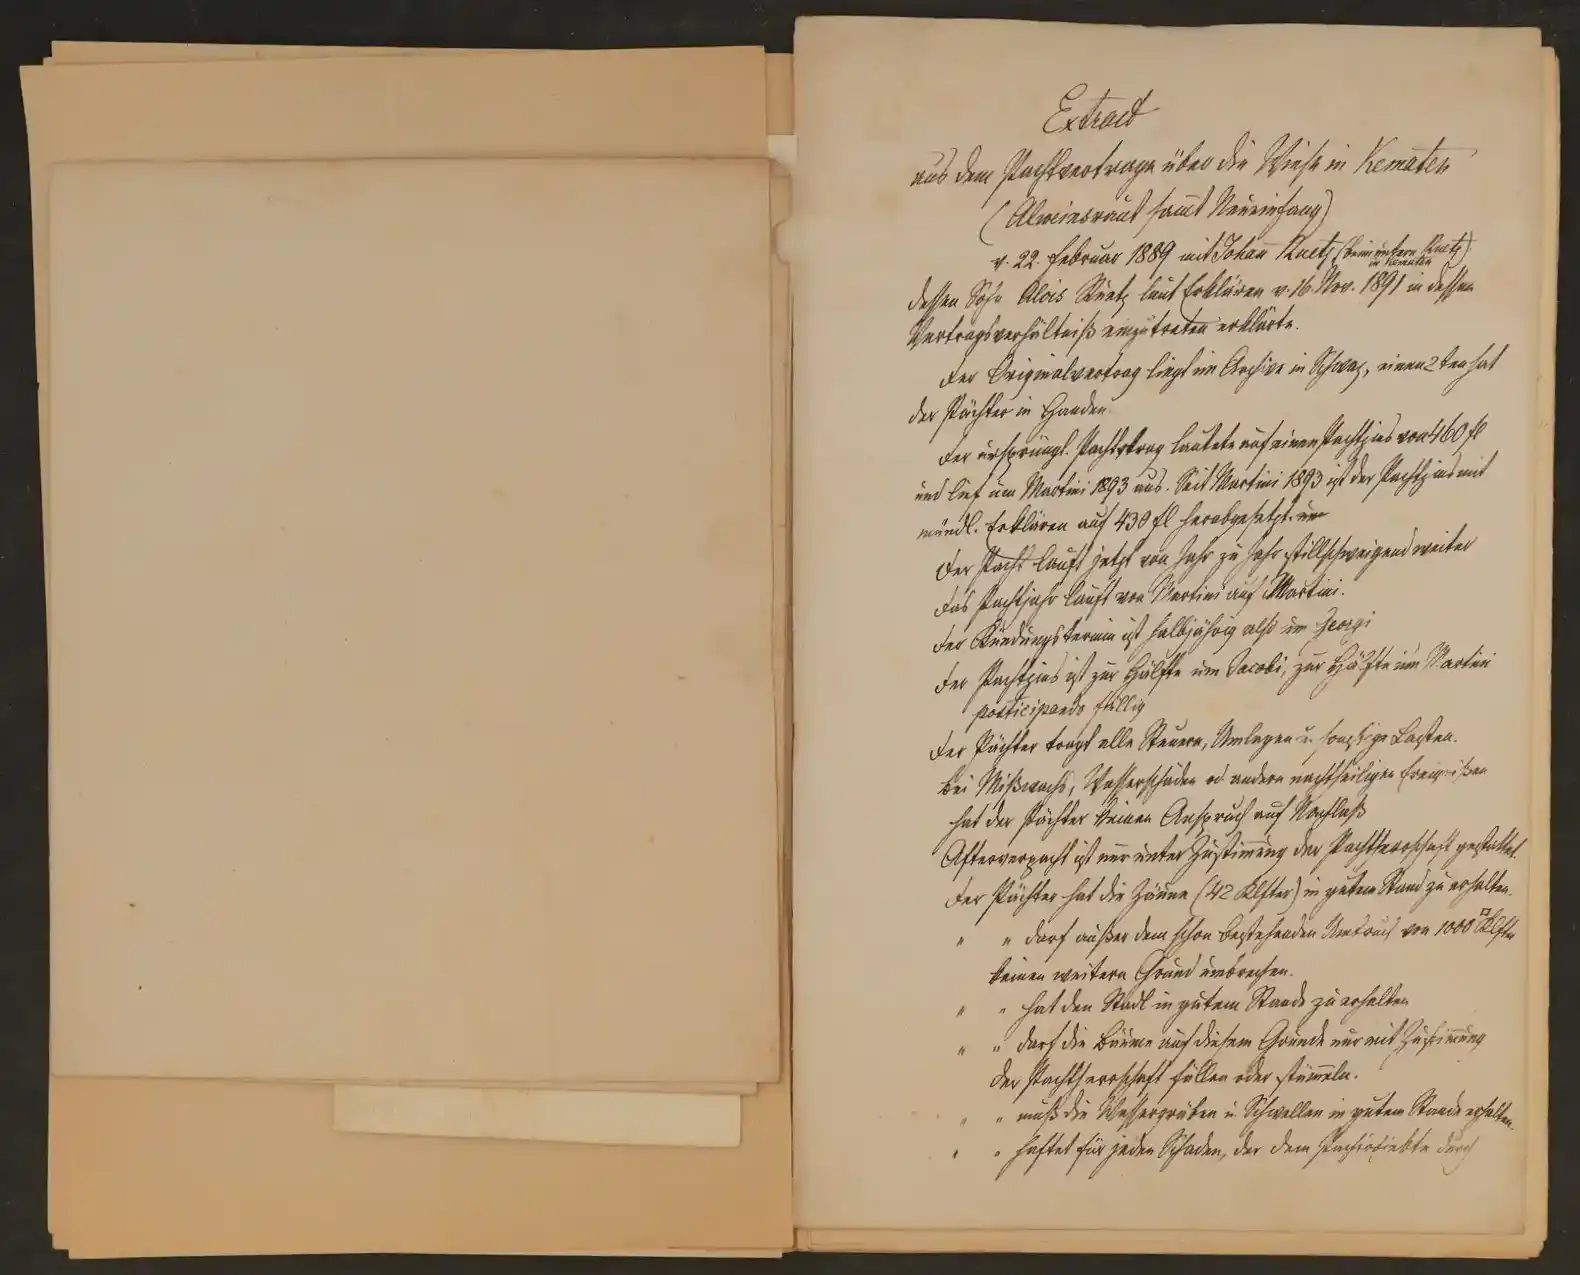 Extract
aus dem Pachtvertrage über die Wiese in Kematen
(Alweinsraut samt Neueinfang)
v. 22. Februar 1889 mit Johan Ruetz (beim untern Ruetz)
in Kematen
dessen Sohn Alois Ruetz laut Erklären v. 16. Nov. 1891 in dessen
Vertragsverhältniß einzutreten erklärte.
Der Originalvertrag liegt im Archive in Schwaz, einen 2ten hat
der Pächter in Handen.
Der ursprüngl. Pachtvtrag lautete auf einen Pachtzins von 460 fl
und lief um Martini 1893 aus. Seit Martini 1893 ist der Pachtzins mit
mündl. Erklären auf 430 fl herabgesetzt.
Der Pacht lauft jetzt von Jahr zu Jahr stillschweigend weiter
Das Pachtjahr lauft von Martini auf Martini.
Der Kündungstermin ist halbjährig also um Georgi
Der Pachtzins ist zur Hälfte um Jacobi, zur Hälfte um Martini
posticipando fällig
Der Pächter tragt alle Steuern, Umlagen u. sonstige Lasten.
Bei Mißwachs, Wasserschäden od andern nachtheiligen Ereignißen
hat der Pächter keinen Anspruch auf Nachlaß
Afterverpacht ist nur unter Zustimung der Pachtherrschaft gestattet.
Der Pächter hat die Zäune (42 Klfter) in gutem Stand zu erhalten.
" " darf außer dem schon bestehenden Umbruch von 1000 □Klfter
keinen weitern Grund umbrechen.
" " hat den Stadl in gutem Stande zu erhalten
" " darf die Bäume auf diesem Grunde nur mit Zustimung
der Pachtherrschaft fällen oder stümeln.
" " muß die Wassergräben u. Schwellen in gutem Stande erhalten.
" " haftet für jeden Schaden, der dem Pachtobjekte durch